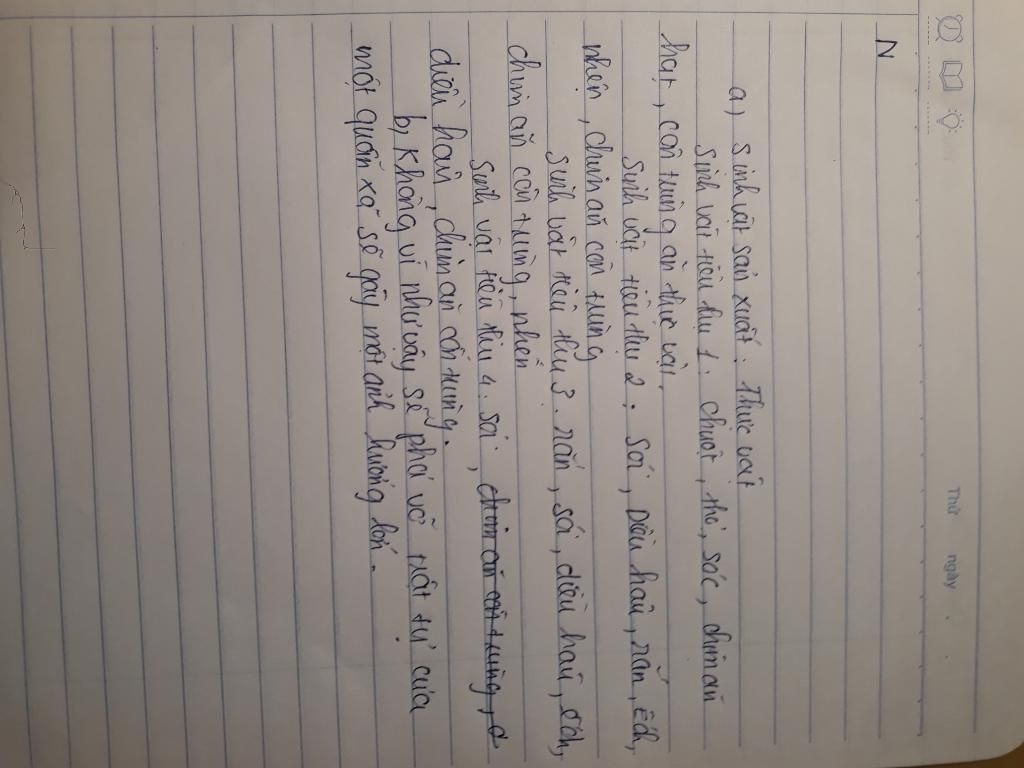 Thứ ngày
N
a) Sinh vật sản xuất: Thực vật
Sinh vật tiêu thụ 1: chuột, thỏ, sóc, chim ăn
hạt, côn trùng ăn thực vật.
Sinh vật tiêu thụ 2: Sói, Diều hâu, rắn, Ếch,
nhện, chim ăn côn trùng
Sinh vật tiêu thụ 3: rắn, sói, diều hâu, ếch,
chim ăn côn trùng, nhện
Sinh vật tiêu thụ 4: sói, chim ăn côn trùng, d
diều hâu, chim ăn côn trùng.
b, Không vì như vậy sẽ phá vỡ trật tự của
một quần xã sẽ gây một ảnh hưởng lớn.